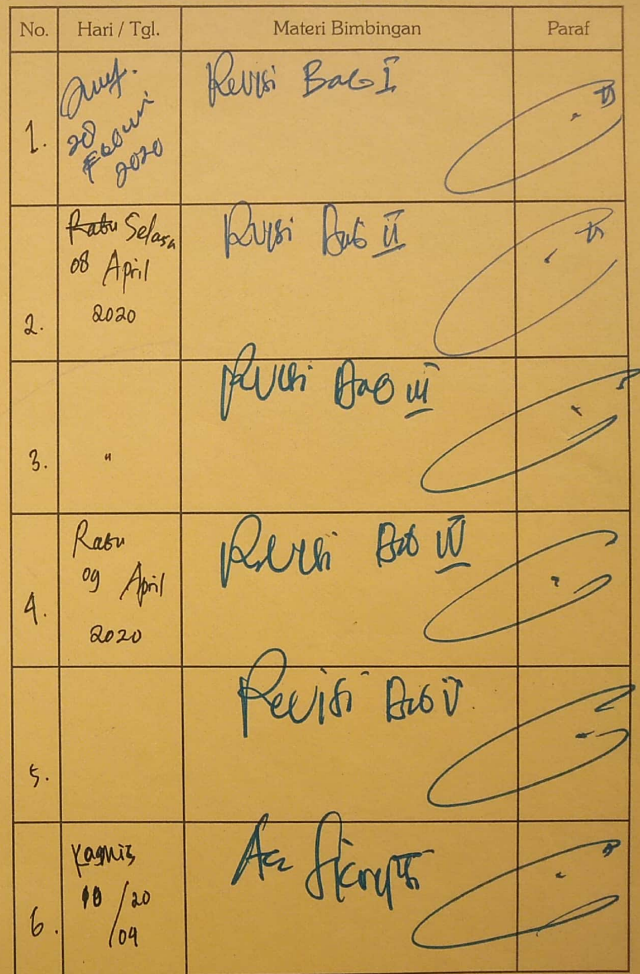 No. Hari / Tgl. Materi Bimbingan Paraf
1. Jum'.
28
Februari
2020
Revisi Bab I
2. Rabu Selasa
08 April
2020
Revisi Bab II
3. "
Revisi Bab III
4. Rabu
09 April
2020
Revisi Bab IV
5. Revisi Bab V
6. Kamis
10 / 20
04
Acc Skripsi